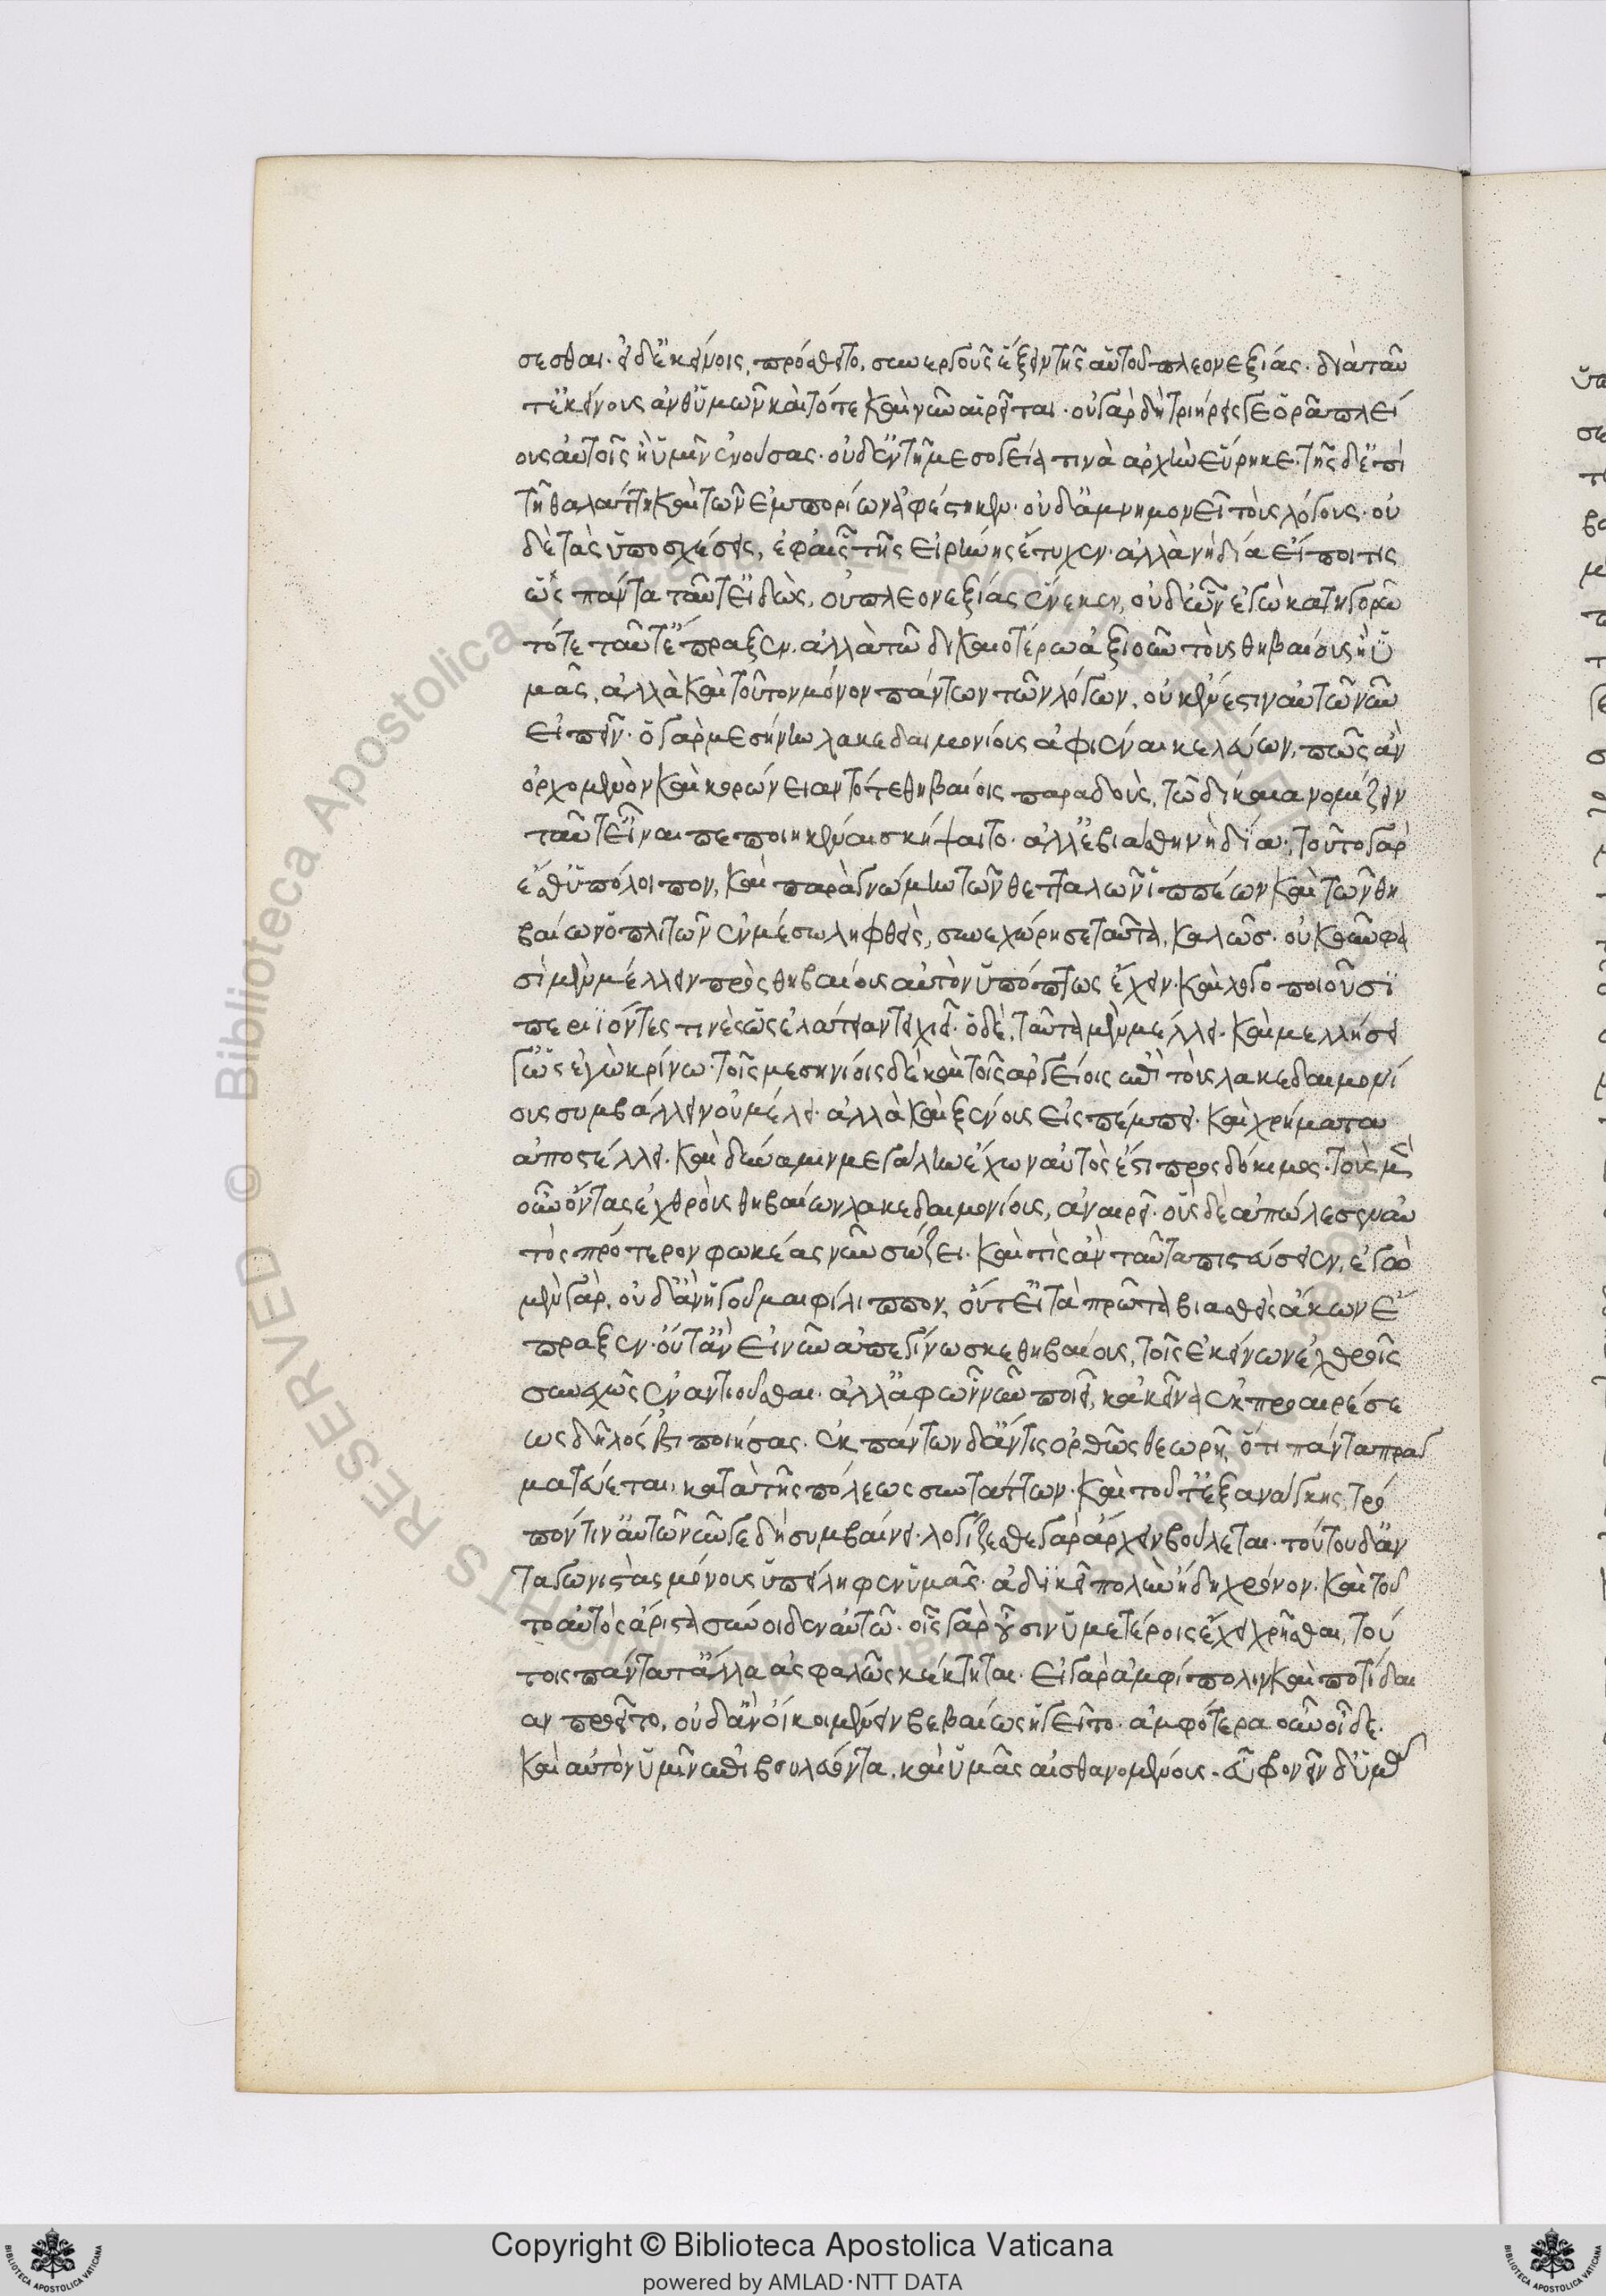 σεσθαι· εἰ δ' ἐκείνοις, πρόσθειτο, συνεργοὺς ἕξειν τῆς αὑτοῦ πλεονεξίας· διὰ ταῦ
τ' ἐκείνους ἀνθ' ὑμῶν καὶ τότε καὶ νῦν αἱρεῖται· οὐ γὰρ δὴ τριήρεις γε ὁρᾶ πλεί
ους αὐτοῖς ἢ ὑμῖν ἐνούσας· οὐδ' ἐν τῆ μεσογεία τινὰ ἀρχὴν εὕρηκε· τῆς δ' ἐπὶ
τῆ θαλάττη καὶ τῶν ἐμπορίων ἀφέστηκεν· οὐδ' ἀμνημονεῖ τοὺς λόγους· οὐ
δὲ τὰς ὑποσχέσεις, ἐφ' αἷς τῆς εἰρήνης ἔτυχεν· ἀλλὰ νὴ δία εἴποι τις
ὡς πάντα ταῦτ' εἰδὼς, οὐ πλεονεξίας ἕνεκεν, οὐδ' ὧν ἐγὼ κατηγορῶ
τότε ταῦτ' ἔπραξεν· ἀλλὰ τῶ δικαιοτέρω ἀξιοῦν τοὺς θηβαίους ἢ ὑ
μᾶς, ἀλλὰ καὶ τοῦτον μόνον πάντων τῶν λόγων, οὐκ ἔνεστιν αὐτῶ νῦν
εἰπεῖν· ὁ γὰρ μεσήνην λακεδαιμονίους ἀφιέναι κελεύων, πῶς ἂν
ὀρχομενὸν καὶ κορώνειαν τότε θηβαίοις παραδοὺς, τῶ δίκαια νομίζειν
ταῦτ' εἶναι πεποιηκέναι σκήψαιτο· ἀλλ' ἐβιάσθη νὴ δία· τοῦτο γὰρ
ἔσθ' ὑπόλοιπον, καὶ παρὰ γνώμην τῶν θετταλῶν ἱππέων καὶ τῶν θη
βαίων ὁπλιτῶν ἐν μέσω ληφθεὶς, συνεχώρησε ταῦτα, καλῶς· οὐκοῦν φα
σὶ μὲν μέλλειν πρὸς θηβαίους αὐτὸν ὑπόπτως ἔχειν· καὶ λογοποιοῦσι
περιϊόντες τινὲς ὡς ἐλάτειαν τειχιεῖ· ὁ δὲ, ταῦτα μὲν μέλλει· καὶ μελλήσει
γ' ὡς ἐγὼ κρίνω· τοῖς μεσηνίοις δὲ καὶ τοῖς ἀργείοις ἐπὶ τοὺς λακεδαιμονί
ους συμβάλλειν οὐ μέλει· ἀλλὰ καὶ ξένους εἰσπέμπει· καὶ χρήματα
ἀποστέλλει· καὶ δύναμιν μεγάλην ἔχων αὐτὸς ἐστι προσδόκιμος· τοὺς μὲν
οὖν ὄντας ἐχθροὺς θηβαίων λακεδαιμονίους, ἀναιρεῖ· οὓς δὲ ἀπώλεσεν αὐ
τὸς πρότερον φωκέας νῦν σώζει· καὶ τὶς ἂν ταῦτα πιστεύσειεν, ἐγὼ
μὲν γὰρ, οὐδ' ἂν ἡγοῦμαι φίλιππον, οὔτ' εἰ τὰ πρῶτα βιασθεὶς ἄκων ἔ
πραξεν· οὔτ' ἂν εἰ νῦν ἀπεγίνωσκε θηβαίους, τοῖς ἐκείνων ἐχθροῖς
συνεχῶς ἐναντιοῦσθαι· ἀλλ' ἀφ' ὧν νῦν ποιεῖ, κἀκεῖνα ἐκ προαιρέσε
ως δῆλός ἐστι ποιήσας· ἐκ πάντων δ' ἄν τις ὀρθῶς θεωρῆ, ὅτι πάντα πραγ
ματεύεται, κατὰ τῆς πόλεως συντάττων· καὶ τοῦτ' ἐξ ἀνάγκης, τρό
πόν τιν' αὐτῶ νῦν γε δὴ συμβαίνει· λογίζεσθε γὰρ ἄρχειν βούλεται· τούτου δ' ἀν
ταγωνιστὰς μόνους ὑπείληφεν ὑμᾶς· ἀδικεῖ πολὺν ἤδη χρόνον· καὶ τοῦ
το αὐτὸς ἄριστα σύνοιδεν αὑτῶ· οἷς γὰρ οὖσιν ὑμετέροις ἔχει χρῆσθαι, τού
τοις πάντα τἄλλα ἀσφαλῶς κέκτηται· εἰ γὰρ ἀμφίπολιν καὶ ποτίδαι
αν προεῖτο, οὐδ' ἂν οἴκοι μένειν βεβαίως ἡγεῖτο· ἀμφότερα οὖν οἶδε·
καὶ αὑτὸν ὑμῖν ἐπιβουλεύοντα, καὶ ὑμᾶς αἰσθανομένους· εὖ φρονεῖν δ' ὑμᾶς
© Biblioteca Apostolica Vaticana ALL RIGHTS RESERVED
Copyright © Biblioteca Apostolica Vaticana
powered by AMLAD·NTT DATA